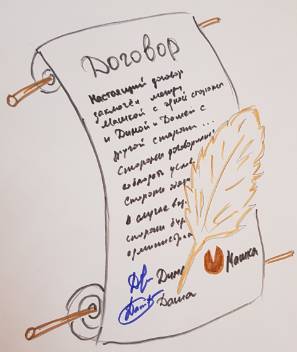 Договор
Настоящий договор
заключён между
Машкой с одной стороны
и Димой и Дашей с
другой стороны ...
Стороны договорились
соблюдать
Стороны
В случае
стороны
Дима
Даша
Мошка